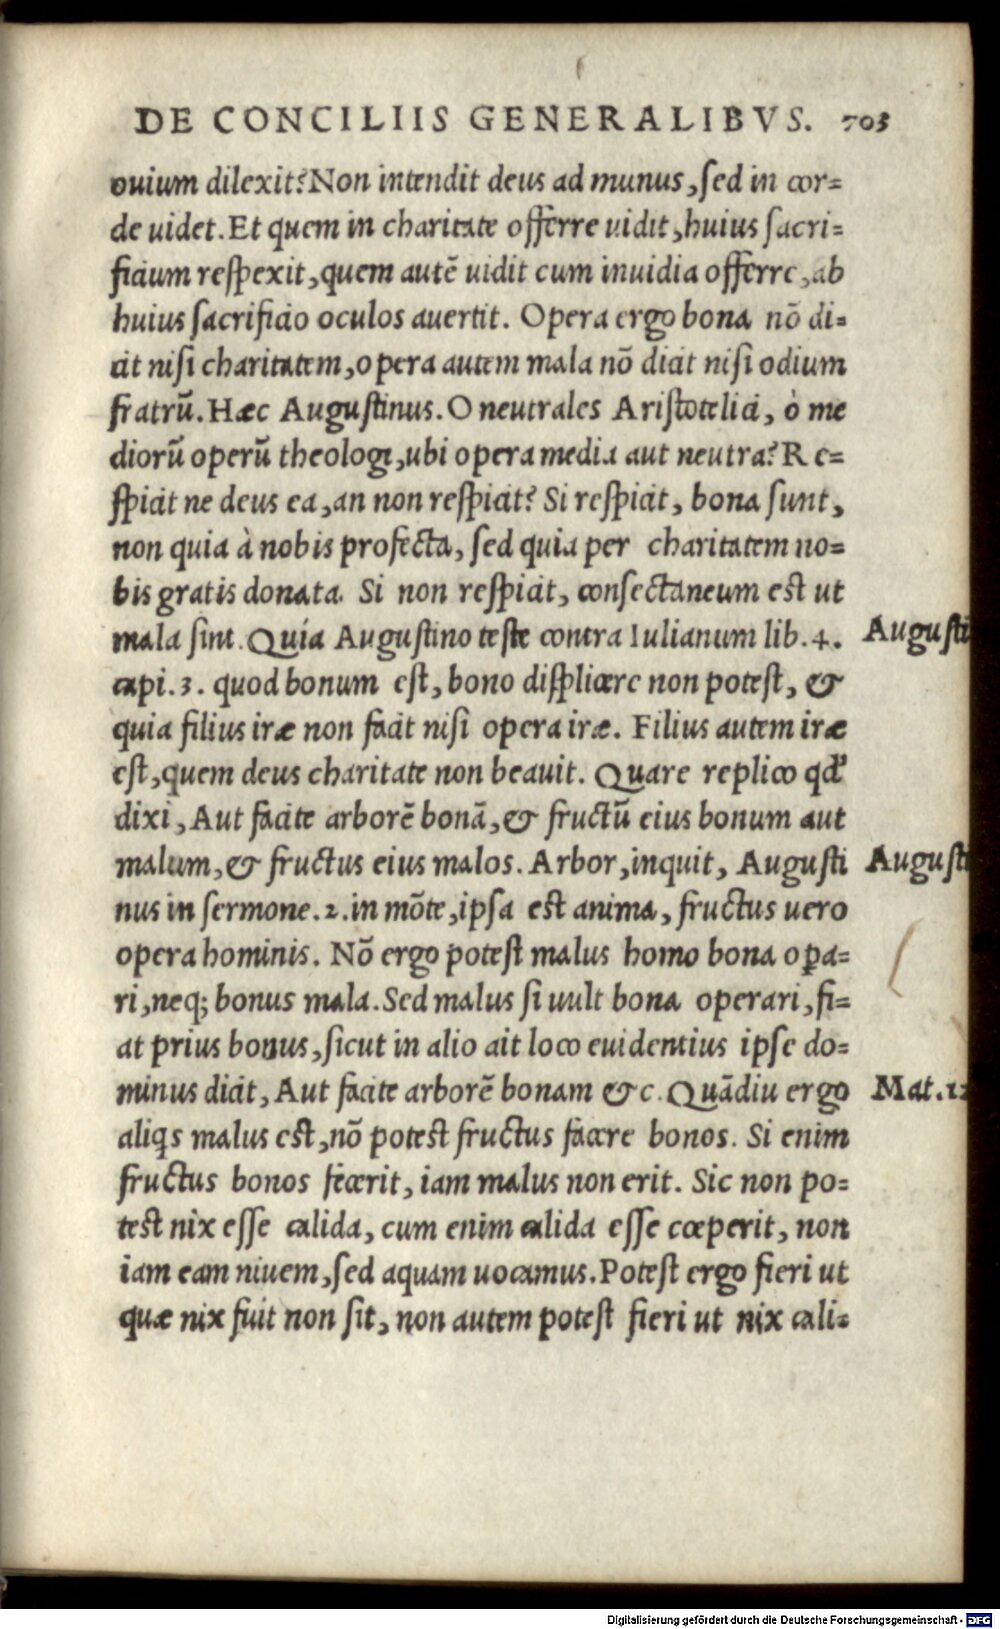 DE CONCILIIS GENERALIBVS. 703
ouium dilexit? Non intendit deus ad munus, sed in cor=
de uidet. Et quem in charitate offerre vidit, huius sacri=
ficium respexit, quem autē uidit cum inuidia offerre, ab
huius sacrificio oculos auertit. Opera ergo bona nō di=
cit nisi charitatem, opera autem mala nō dicit nisi odium
fratrū. Hæc Augustinus. O neutrales Aristotelici, ò me
diorū operū theologi, ubi opera media aut neutra? Re=
spicit ne deus ea, an non respicit? Si respicit, bona sunt,
non quia à nobis profecta, sed quia per charitatem no=
bis gratis donata. Si non respicit, consectaneum est ut
mala sint. Quia Augustino teste contra Iulianum lib. 4. Augusti
capi. 3. quod bonum est, bono displicere non potest, &
quia filius iræ non facit nisi opera iræ. Filius autem iræ
est, quem deus charitate non beauit. Quare replico qd'
dixi, Aut facite arborē bonā, & fructū eius bonum aut
malum, & fructus eius malos. Arbor, inquit, Augusti Augusti
nus in sermone. 2. in mōte, ipsa est anima, fructus uero
opera hominis. Nō ergo potest malus homo bona oꝑa=
ri, neq; bonus mala. Sed malus si uult bona operari, fi=
at prius bonus, sicut in alio ait loco euidentius ipse do=
minus dicit, Aut facite arborē bonam &c. Quādiu ergo Mat. 12
aliqs malus est, nō potest fructus facere bonos. Si enim
fructus bonos fecerit, iam malus non erit. Sic non po=
test nix esse calida, cum enim calida esse cœperit, non
iam eam niuem, sed aquam uocamus. Potest ergo fieri ut
quæ nix fuit non sit, non autem potest fieri ut nix cali=
Digitalisierung gefördert durch die Deutsche Forschungsgemeinschaft - DFG